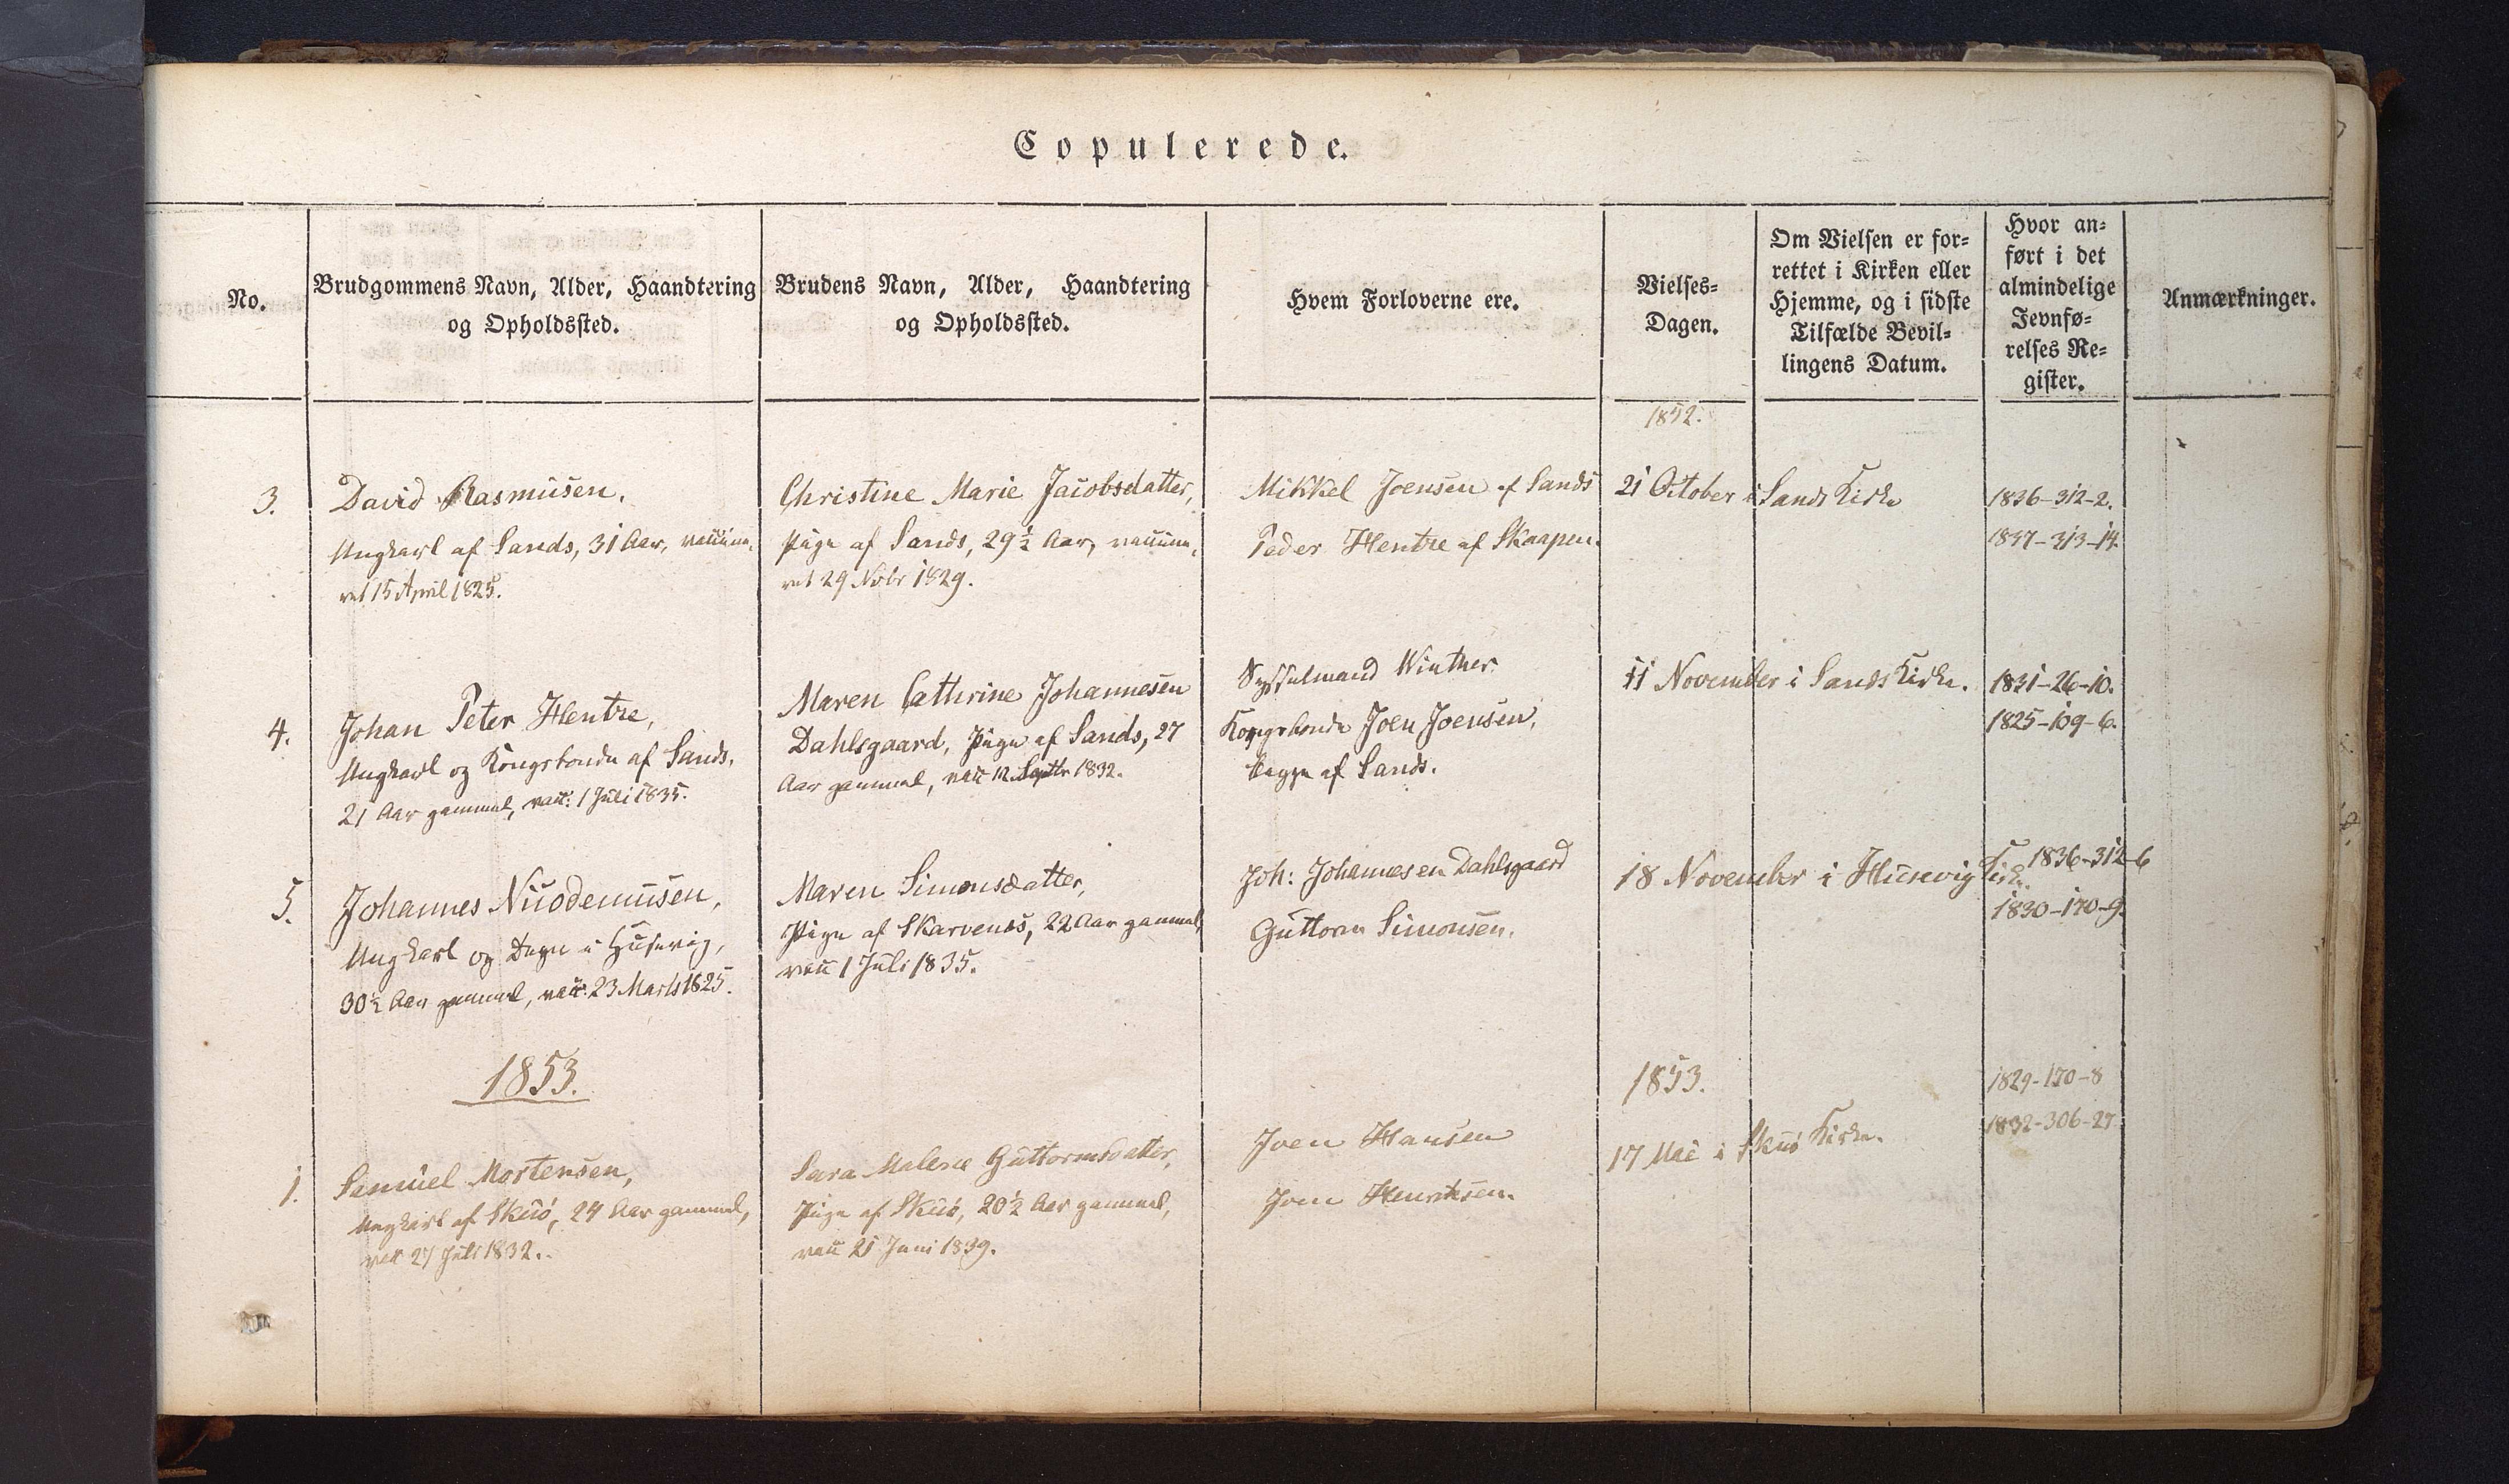 Copulerede.
No.
Brudgommens Navn, Alder, Haandtering
og Opholdssted.
Brudens Navn, Alder, Haandtering
og Opholdssted.
Hvem Forloverne ere.
Vielses-
Dagen.
Om Vielsen er for-
rettet i Kirken eller
Hjemme, og i sidste
Tilfælde Bevil-
lingens Datum.
Hvor an-
ført i det
almindelige
Jevnfø-
relses Re-
gister.
Anmærkninger.
1852.
3.
David Rasmusen,
Ungkarl af Sands, 31 Aar, vaccine-
ret 15 April 1825.
Christine Marie Jacobsdatter,
Pige af Sands, 29½ Aar, vaccine-
ret 29 Nobr 1829.
Mikkel Joensen af Sands
Peder Hentze af Skaapen.
21 October i Sands Kirke
1836-312-2.
1837-313-14.
4.
Johan Peter Hentze,
Ungkarl og Kongsbonde af Sands,
21 Aar gammel, vacc: 1 Juli 1835.
Maren Cathrine Johannesen
Dahlsgaard, Pige af Sands, 27
Aar gammel, vacc 12 Septbr 1832.
Sysselmand Winther
Kongsbonde Joen Joensen,
begge af Sands.
11 November i Sands Kirke.
1831-26-10.
1825-109-6.
5.
Johannes Nicodemusen,
Ungkarl og Degn i Husevig,
30½ Aar gammel, vacc. 23 Marts 1825.
Maren Simonsdatter,
Pige af Skarvenæs, 22 Aar gammel,
vacc 1 Juli 1835.
Joh: Johannesen Dahlsgaard
Guttorm Simonsen.
18 November i Husevig Kirke.
1836-312-6
1830-170-9.
1853.
1853.
1.
Samuel Mortensen,
Ungkarl af Skuø, 24 Aar gammel,
vacc 27 Juli 1832.
Sara Malene Guttormsdatter,
Pige af Skuø, 20½ Aar gammel,
vacc 21 Juni 1839.
Joen Hansen
Joen Henriksen.
17 Mai i Skuø Kirke.
1829-170-8
1832-306-27.